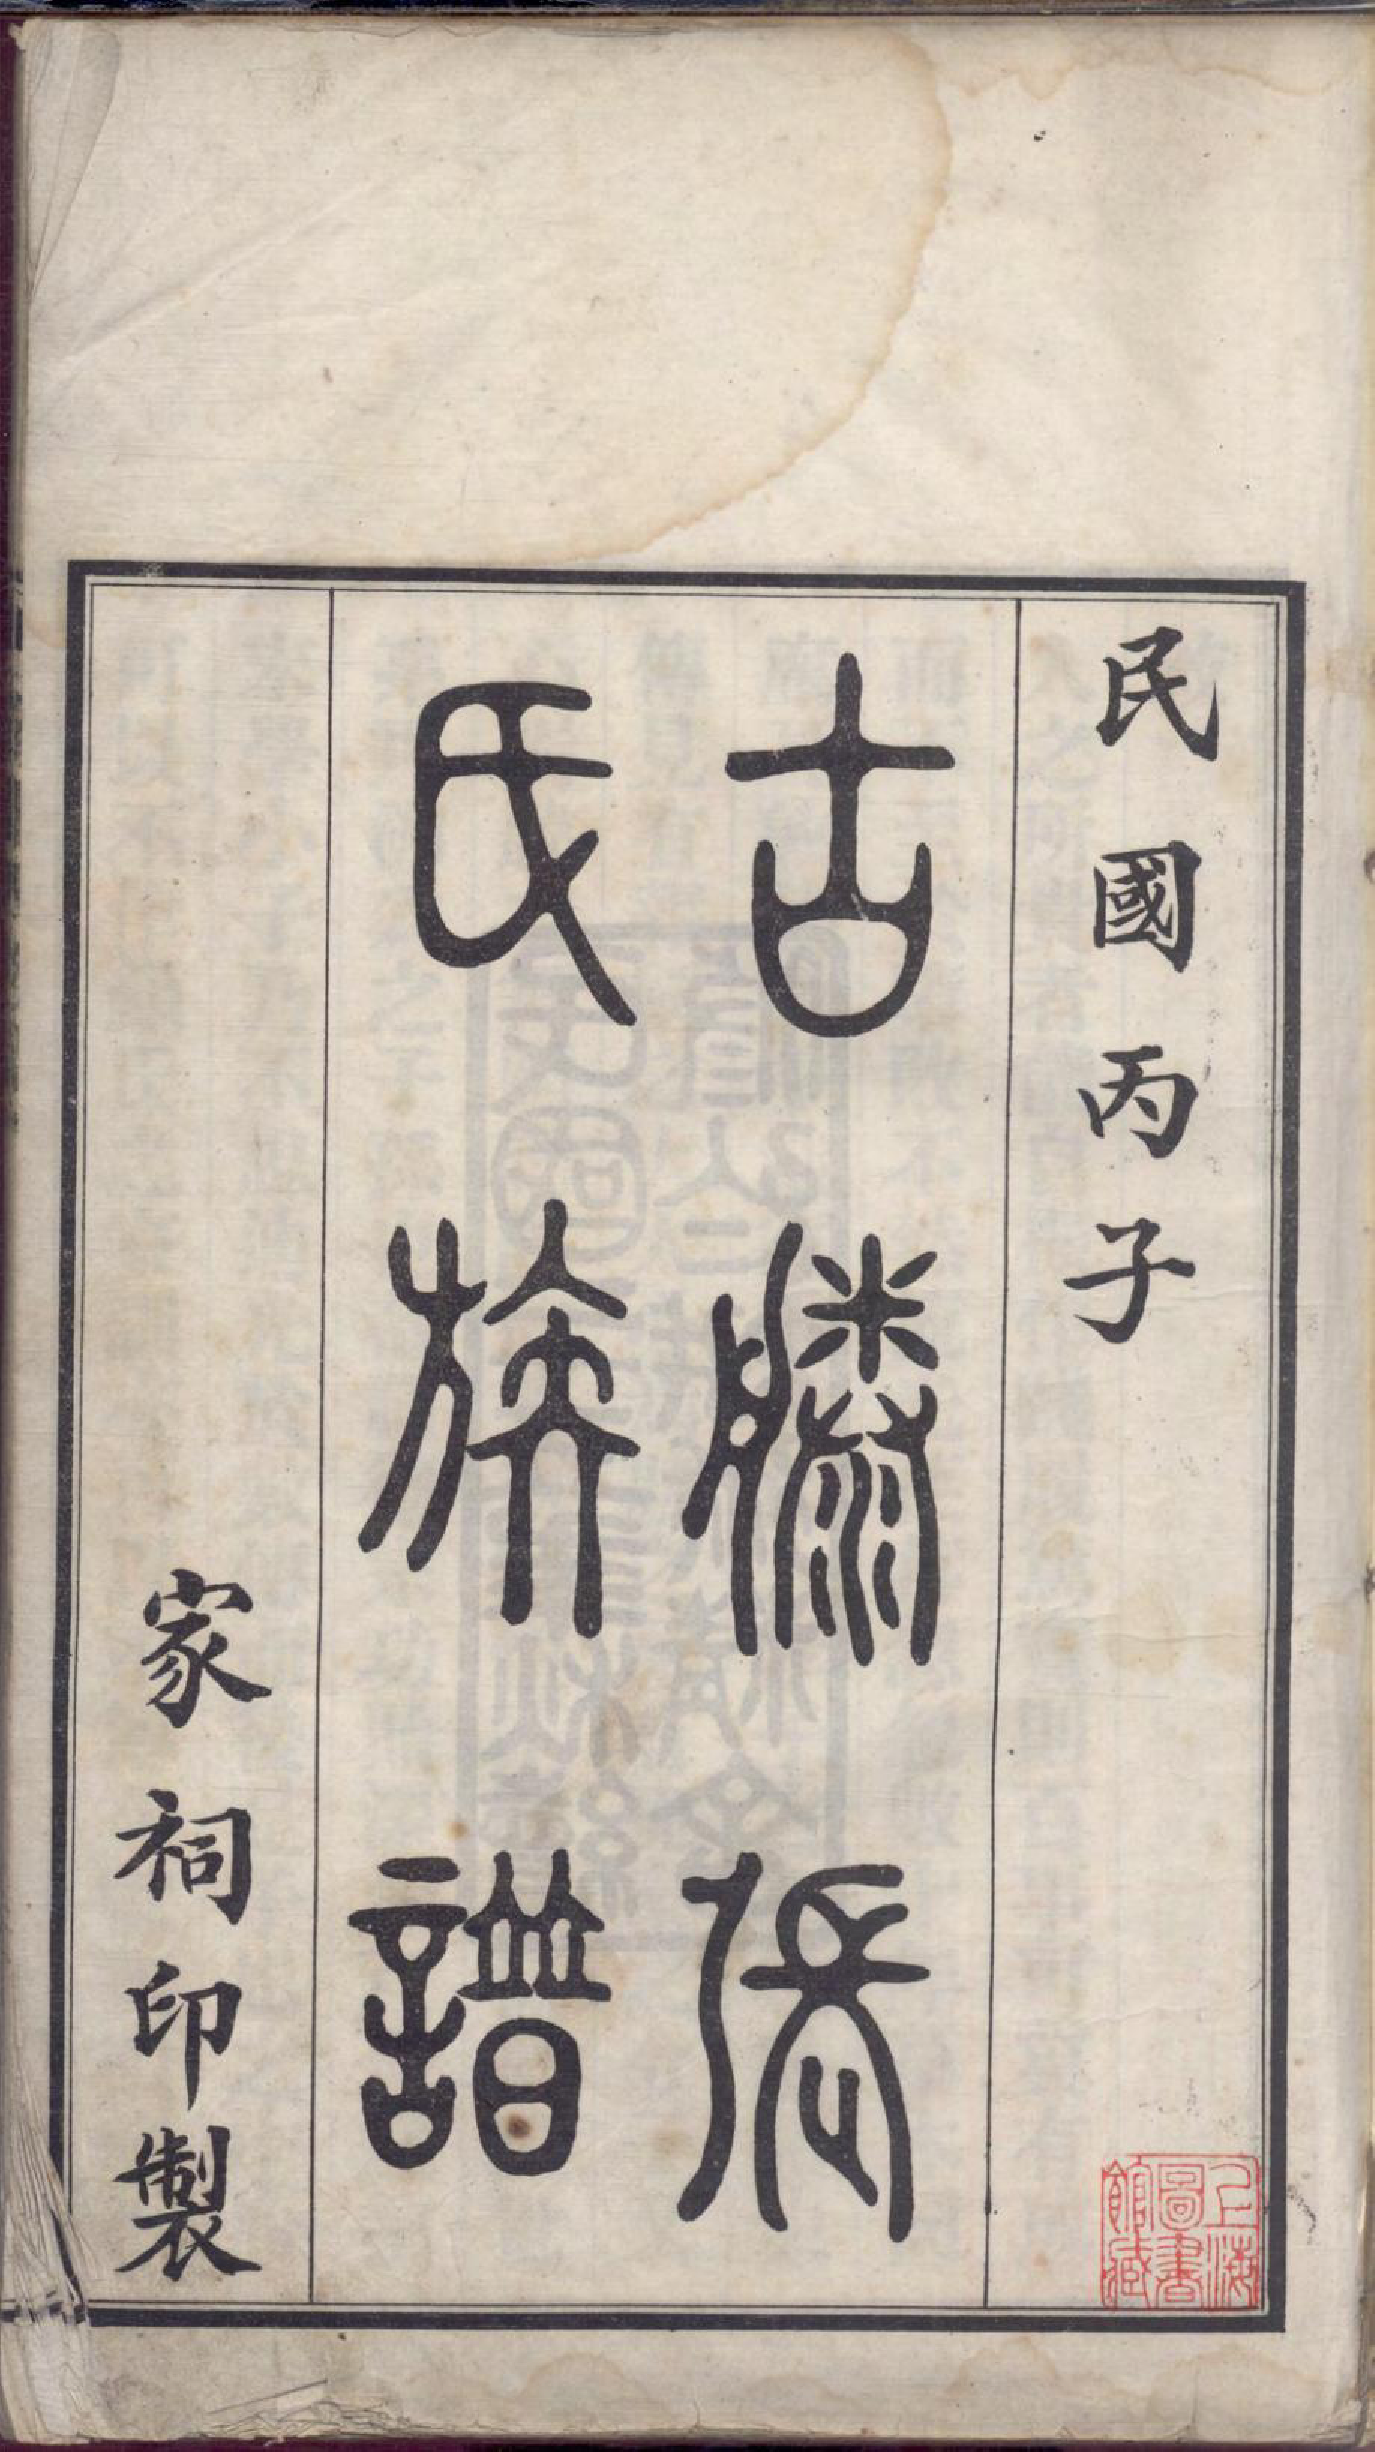 民國丙子
古滕張
氏族譜
家祠印製
上海
圖書
館藏